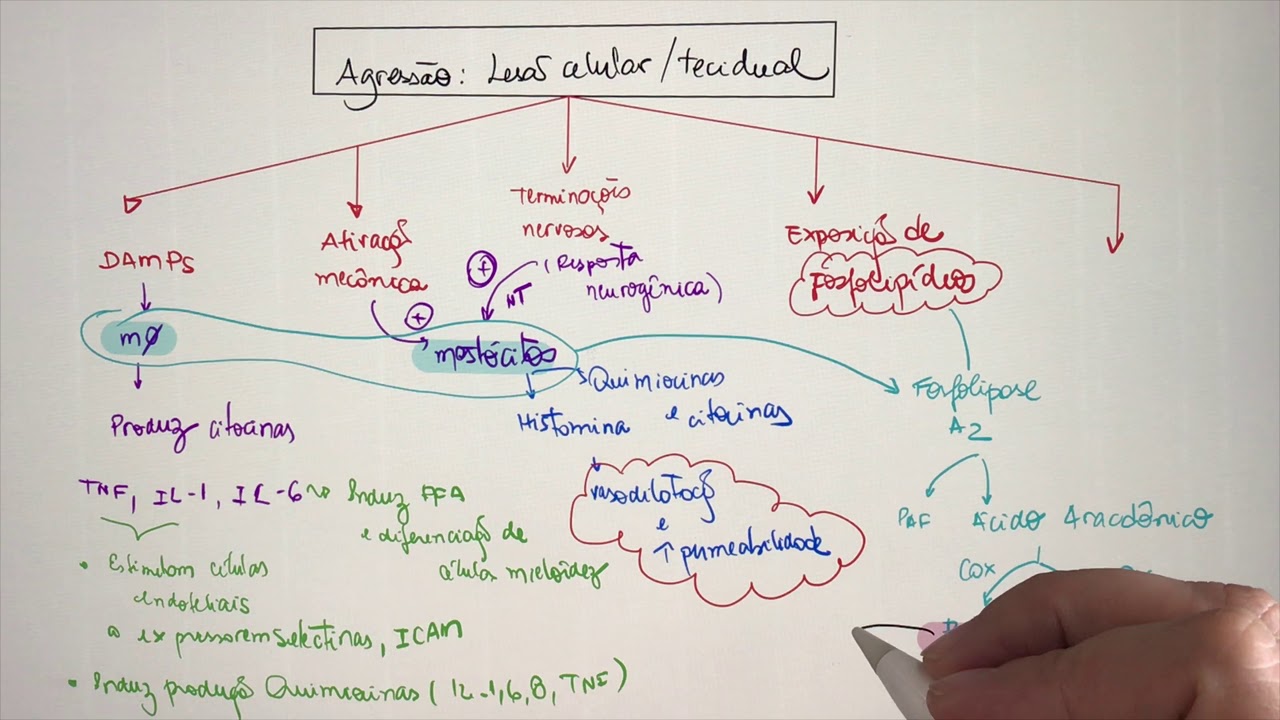 Agressão: Lesão celular/tecidual
DAMPs
Ativação
mecânica
Terminações
nervosas
(Resposta
neurogênica)
NT
+
+
Exposição de
Fosfolipídeos
mø
mastócitos
Produz citocinas
Quimiocinas
e citocinas
Histamina
Fosfolipase
A2
vasodilatação
e
↑ permeabilidade
PAF
Ácido Aracdônico
Cox
TNF, IL-1, IL-6 → Induz FFA
e diferenciação de
célula mieloides
• Estimulam células
endoteliais
a expressarem selectinas, ICAM
• Induz produção Quimiocinas (IL-1,6,8, TNF)